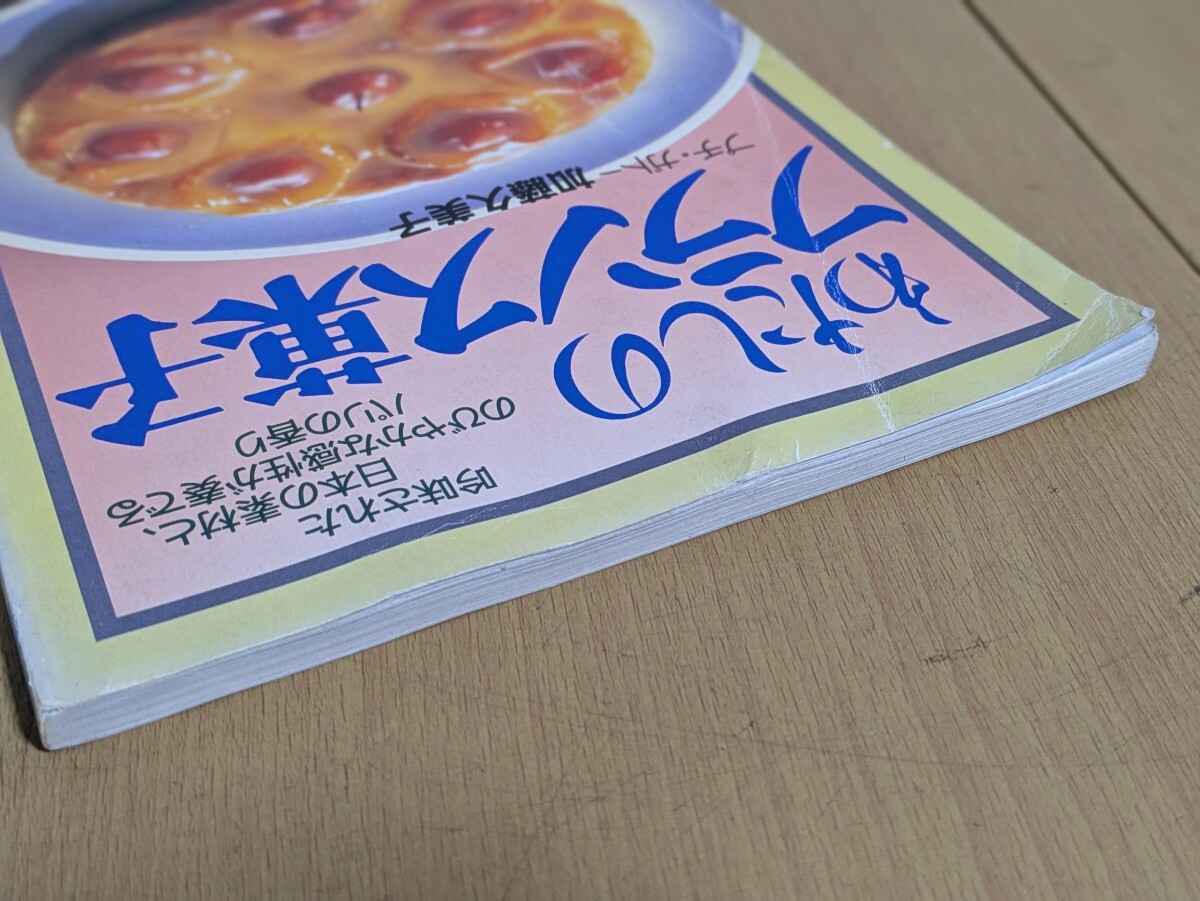 わたしの
フランス菓子
プチ・ガトー 加藤久美子
吟味された
日本の素材と、
のびやかな感性が奏でる
パリの香り